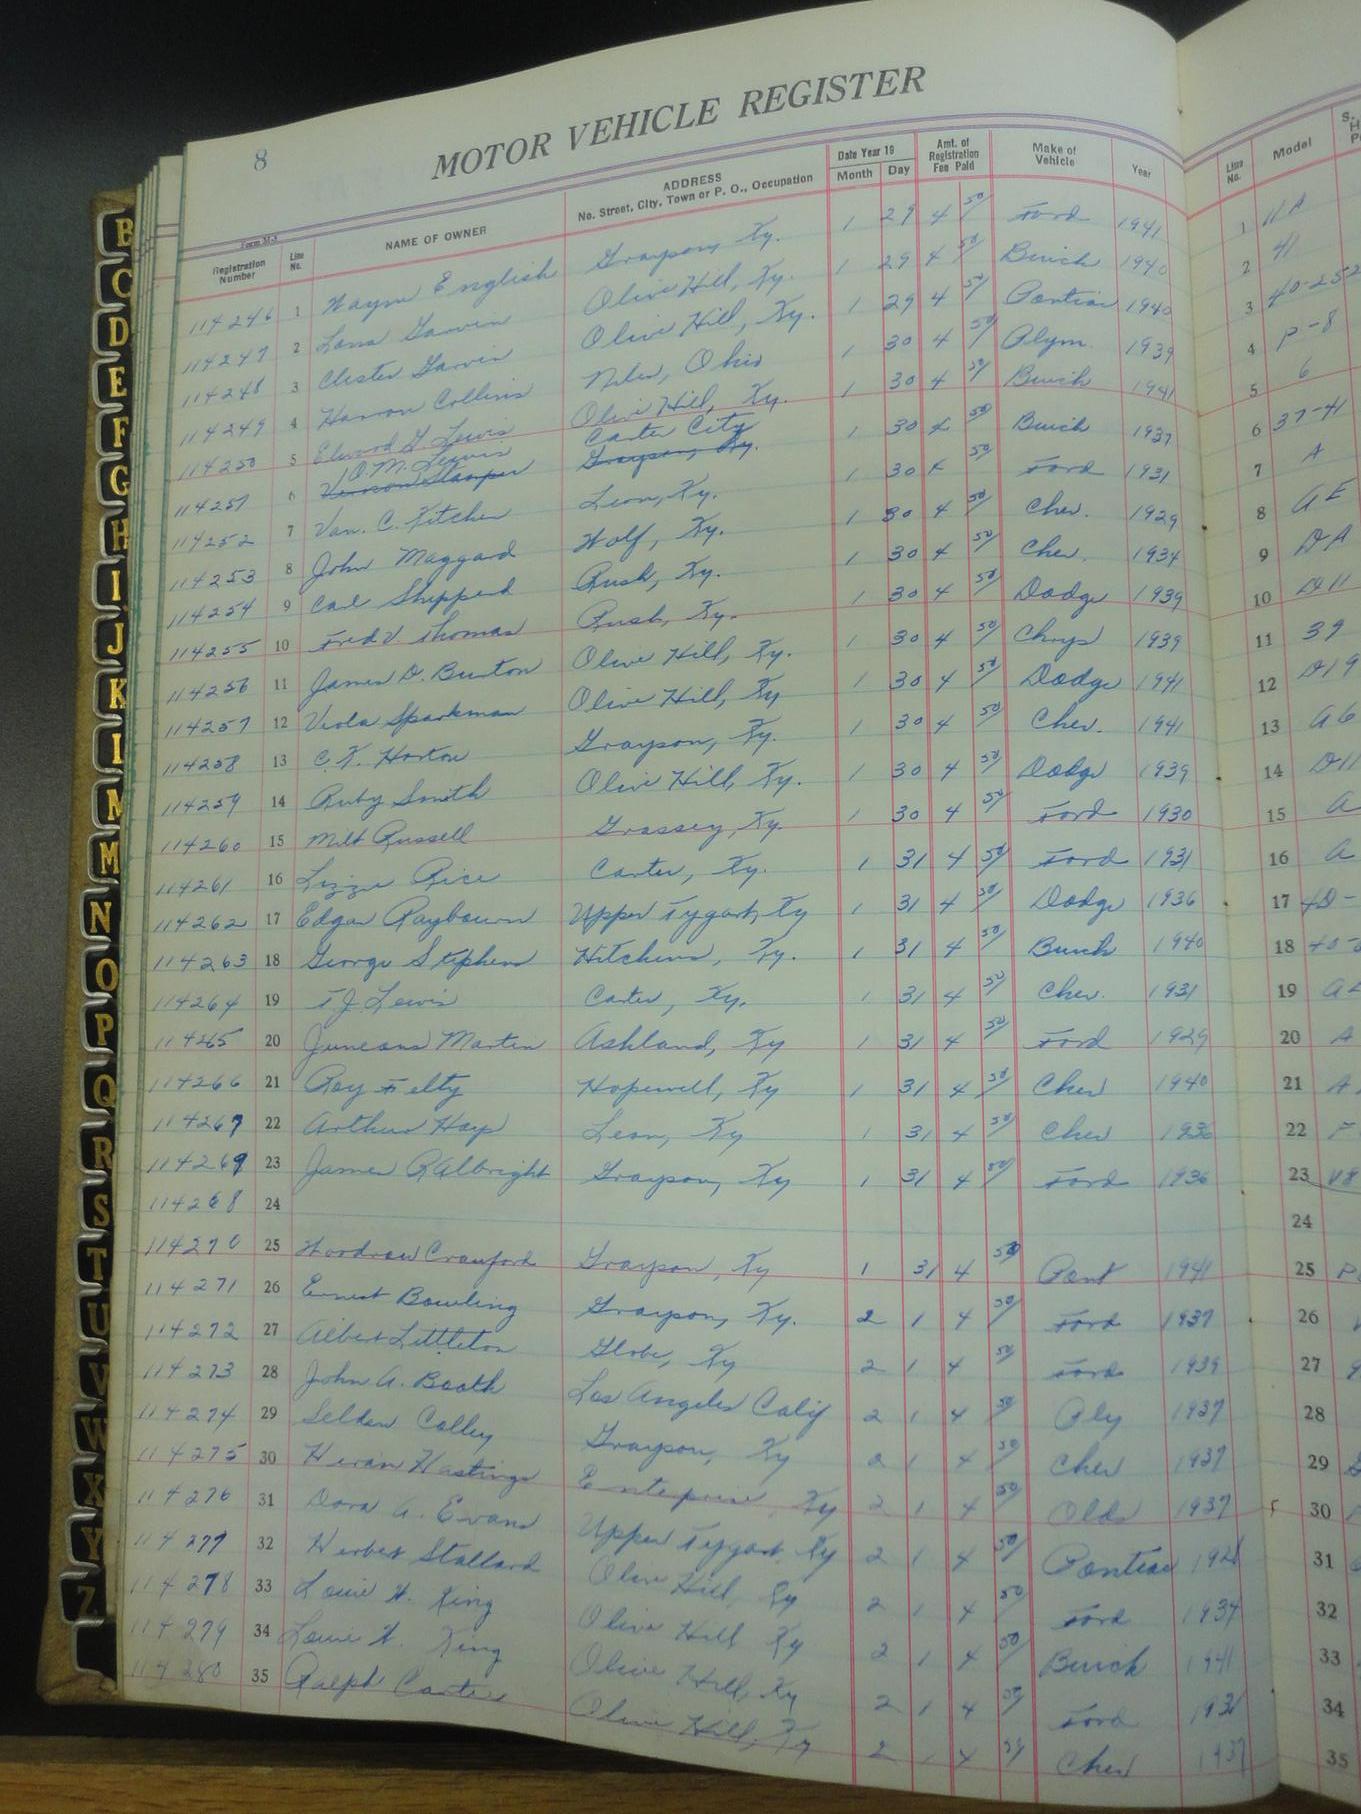 8
MOTOR VEHICLE REGISTER
Form M-3
Registration Number Line No. NAME OF OWNER ADDRESS No. Street, City, Town or P. O., Occupation Date Year 19 Month Day Amt. of Registration Fee Paid Make of Vehicle Year Line No. Model
114246 1 Wayne English Grayson, Ky. 1 29 4 50 Ford 1941 1 11A
114247 2 Lana Garvin Olive Hill, Ky. 1 29 4 50 Buick 1940 2 41
114248 3 Chester Garvin Olive Hill, Ky. 1 29 4 50 Pontiac 1940 3 40-252
114249 4 Collins Niles, Ohio 1 30 4 50 Plym. 1939 4 P-8
114250 5 Elwood G Lewis Olive Hill, Ky. 1 30 4 50 Buick 1941 5 6
114251 6 O.M. Lewis Vernon Stamper Carter City Grayson, Ky. 1 30 4 50 Buick 1937 6 37-41
114252 7 Van. C. Kitchen Leon, Ky. 1 30 4 50 Ford 1931 7 A
114253 8 John Maggard Wolf, Ky. 1 30 4 50 Chev. 1929 8 AE
114254 9 Carl Shepperd Rush, Ky. 1 30 4 50 Chev. 1934 9 DA
114255 10 Fred V Thomas Rush, Ky. 1 30 4 50 Dodge 1939 10 D11
114256 11 James D. Burton Olive Hill, Ky. 1 30 4 50 Chrys 1939 11 39
114257 12 Viola Sparkman Olive Hill, Ky 1 30 4 50 Dodge 1941 12 D19
114258 13 C. K. Horton Grayson, Ky. 1 30 4 50 Chev. 1941 13 A6
114259 14 Ruby Smith Olive Hill, Ky. 1 30 4 50 Dodge 1939 14 D11
114260 15 Milt Russell Grassey, Ky. 1 30 4 50 Ford 1930 15 A
114261 16 Lizzie Rice Carter, Ky. 1 31 4 50 Ford 1931 16 A
114262 17 Edgar Raybourn Upper Tygart, Ky 1 31 4 50 Dodge 1936 17
114263 18 George Stephens Hitchins, Ky. 1 31 4 50 Buick 1940 18
114264 19 T J Lewis Carter, Ky. 1 31 4 50 Chev. 1931 19
114265 20 Martin Ashland, Ky 1 31 4 50 Ford 1929 20 A
114266 21 Ray Felty Hopewell, Ky 1 31 4 50 Chev 1940 21
114267 22 Arthur Hays Leon, Ky 1 31 4 50 Chev 1936 22
114269 23 James R Albright Grayson, Ky 1 31 4 50 Ford 1936 23 V8
114268 24 24
114270 25 Woodrow Crawford Grayson, Ky 1 31 4 50 Pont 1941 25
114271 26 Ernest Bowling Grayson, Ky. 2 1 4 50 Ford 1937 26
114272 27 Albert Littleton Globe, Ky 2 1 4 50 Ford 1939 27
114273 28 John A. Booth Los Angeles Calif 2 1 4 50 Ply 1937 28
114274 29 Selden Colley Grayson, Ky 2 1 4 50 Chev 1937 29
114275 30 Hiram Hastings Enterprise, Ky 2 1 4 50 Olds 1937 30
114276 31 Dora A. Evans Upper Tygart, Ky 2 1 4 50 Pontiac 1928 31
114277 32 Herbert Stallard Olive Hill, Ky 2 1 4 50 Ford 1934 32
114278 33 Louie H. King Olive Hill Ky 2 1 4 50 Buick 1941 33
114279 34 Louie H. King Olive Hill, Ky 2 1 4 50 Ford 34
114280 35 Ralph Carter Olive Hill, Ky 2 1 4 50 Chev 1937 35
B
C
D
E
F
G
H
I
J
K
M
N
O
P
Q
R
S
T
U
V
W
X
Y
Z